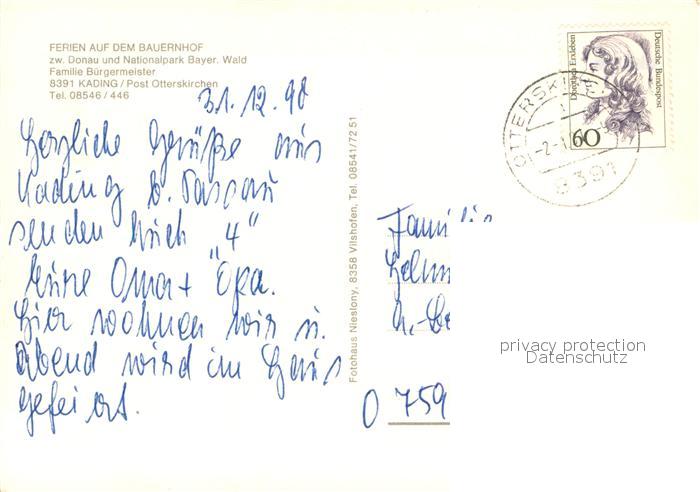 FERIEN AUF DEM BAUERNHOF
zw. Donau und Nationalpark Bayer. Wald
Familie Bürgermeister
8391 KADING / Post Otterskirchen
Tel. 08546 / 446
31.12.90
Herzliche Grüße aus
Kading b. Passau
senden Euch "4"
Eure Oma + Opa.
Hier wohnen wir u.
abend wird im Haus
gefeiert.
Fotohaus Nieslony, 8358 Vilshofen, Tel. 08541/7251
Dorothea Erxleben
Deutsche Bundespost
60
8391
Familie
O 759
privacy protection
Datenschutz